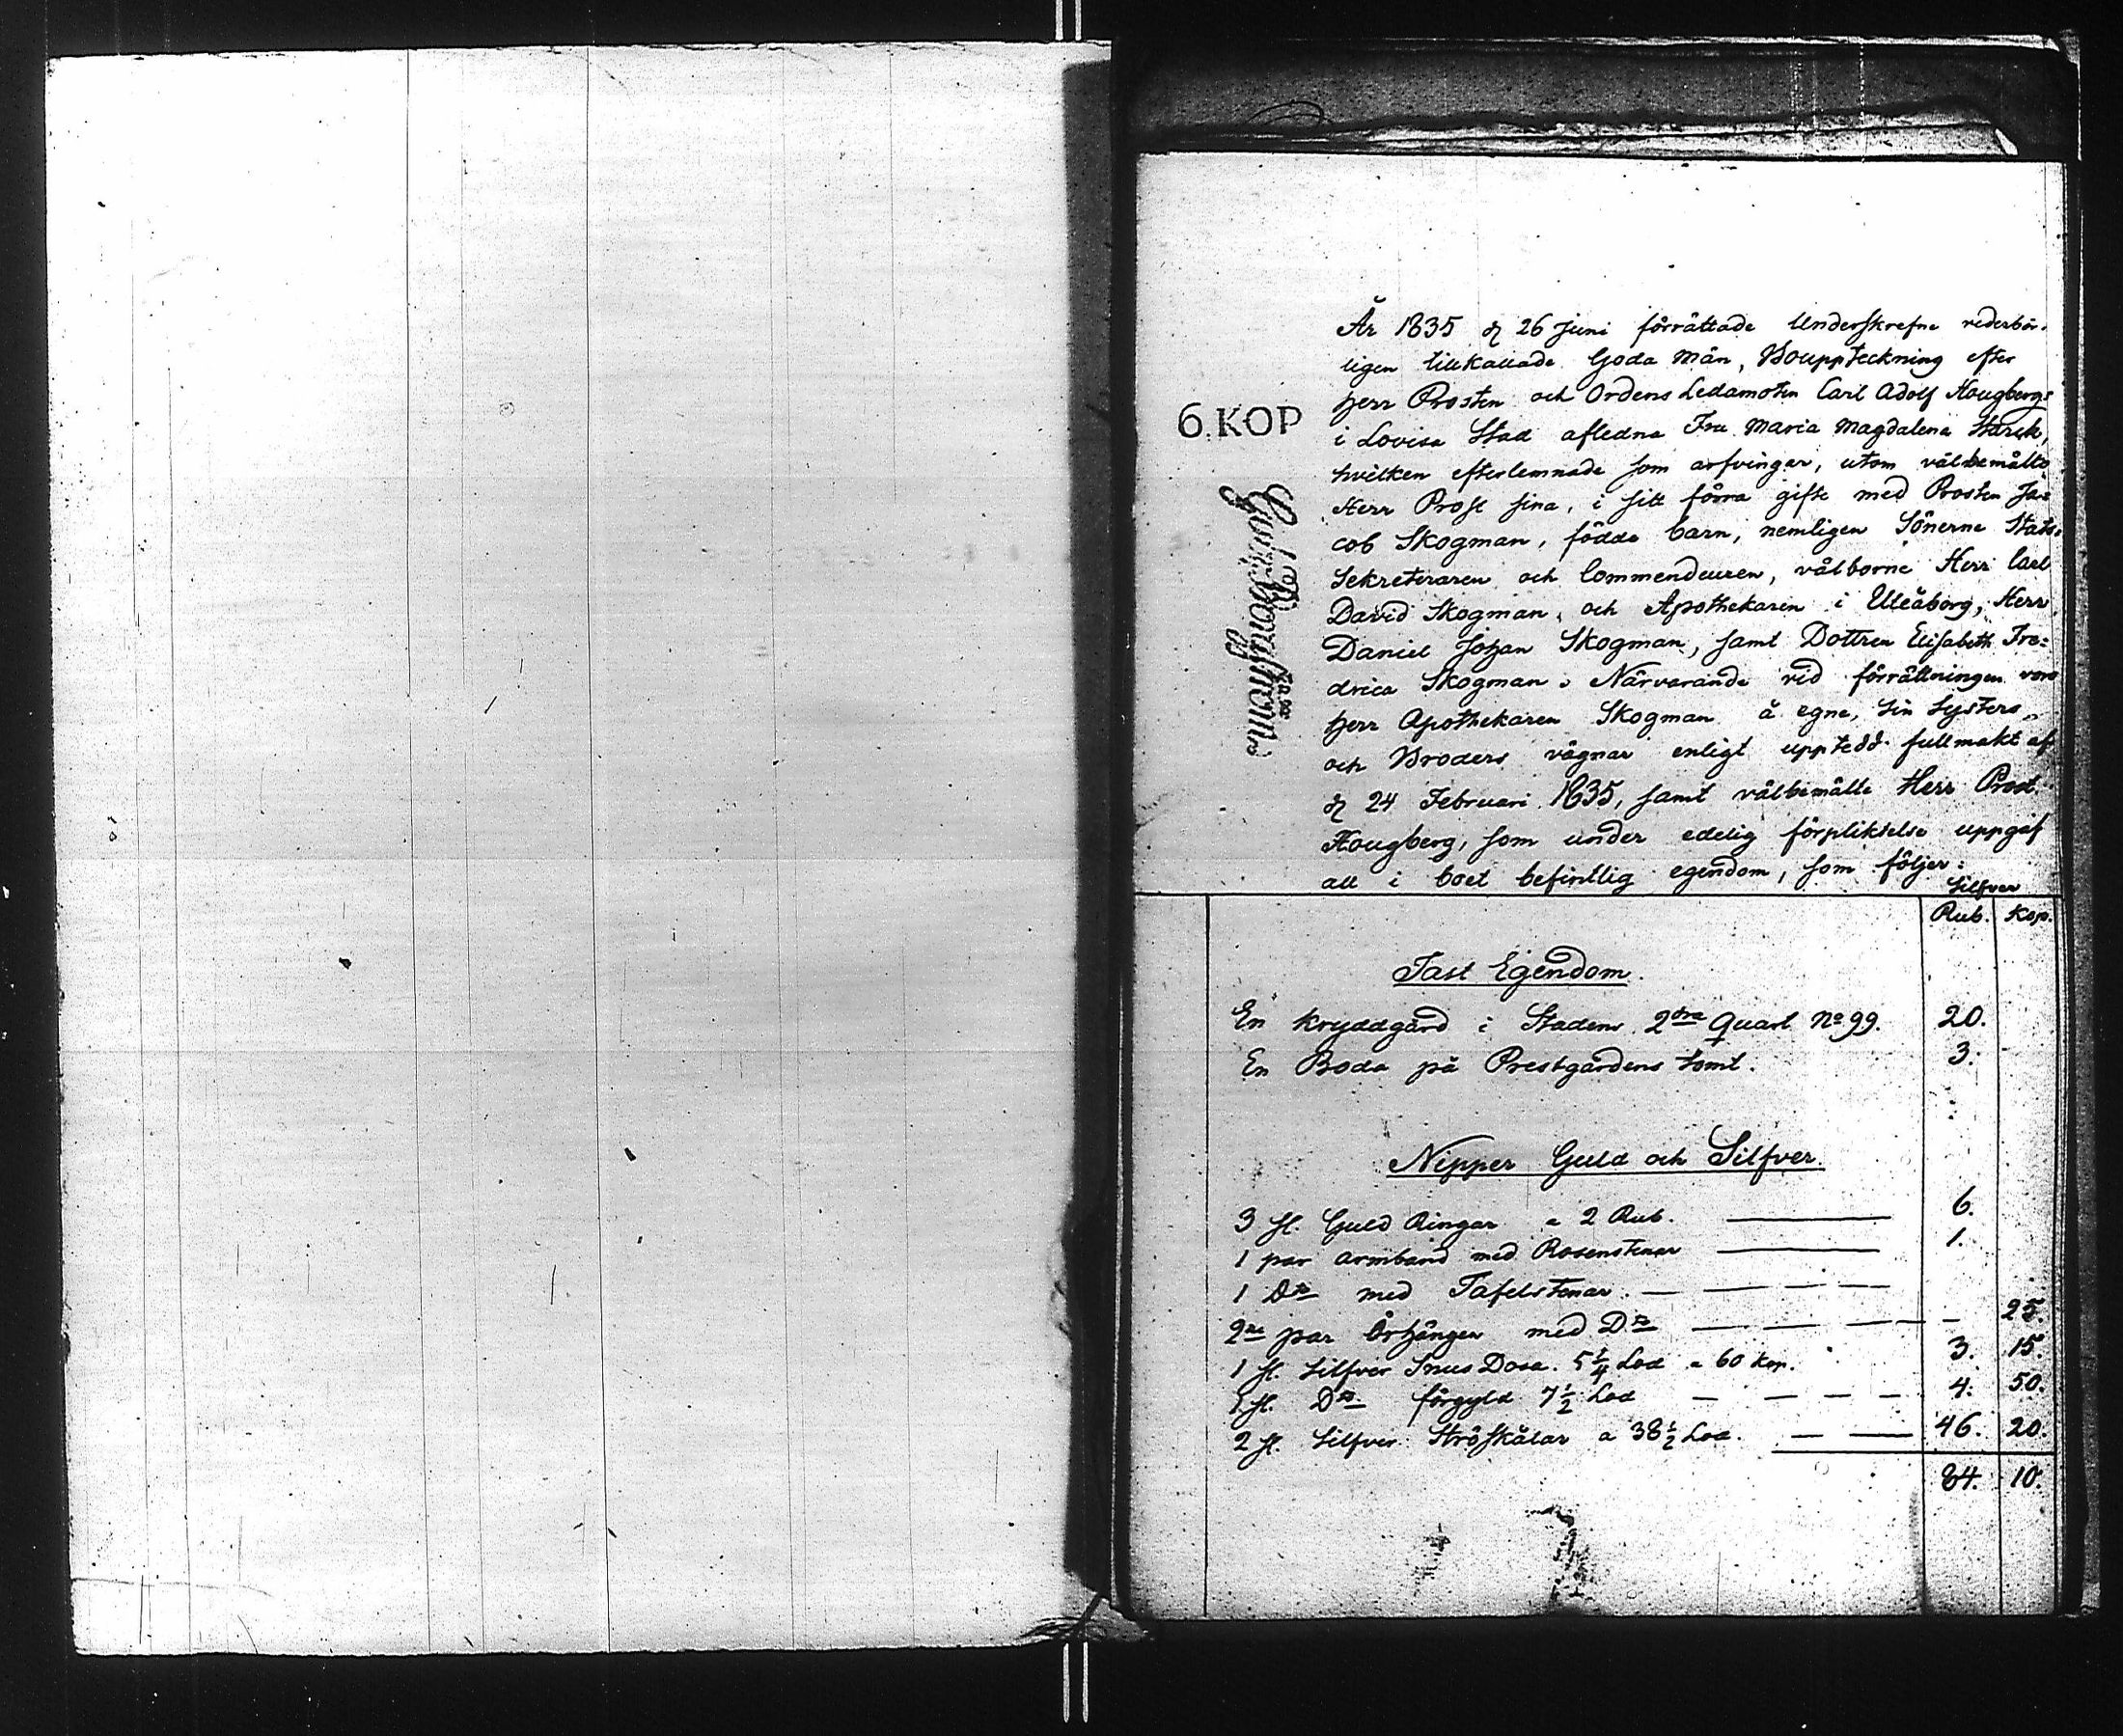 År 1835 d 26 Juni förrättade Underskrefne vederbör-
ligen tillkallade Goda Män, Bouppteckning efter
Herr Prosten och Ordens Ledamoten Carl Adolf Hougbergs
i Lovisa Stad aflidna Fru Maria Magdalena Starck,
hvilken efterlemnade som arfvingar, utom välbemälte
Herr Prost sina, i sitt förra gifte med Prosten Ja=
cob Skogman, födda barn, nemligen Sönerne Stats-
Sekreteraren och Commendeuren, välborne Herr Carl
David Skogman, och Apothekaren i Uleåborg, Herr
Daniel Johan Skogman, samt Dottren Elisabeth Fre=
drica Skogman. Närvarande vid förrättningen voro
Herr Apothekaren Skogman å egne, sin Systers
och Broders vägnar enligt uppteдd fullmakt af
d 24 Februari 1835, samt välbemälte Herr Prost
Hougberg, som under edelig förpliktelse uppgaf
all i boet befintlig egendom, som följer:
6. KOP
Silfver
Rub. Kop.
Fast Egendom.
En Kryddgård i Stadens 2dra Quart No 99. 20.
En Boda på Prestgårdens tomt. 3.
Nipper Guld och Silfver.
3 st. Guld Ringar a 2 Rub. 6.
1 par armband med Rosenstenar 1.
1 Dto med Tafelstenar.
2ne par Örhängen med Dto 25.
1 st. Silfver Snus Dosa. 5 1/4 Lod a 60 kop. 3. 15.
1 st. Dto förgyld 7 1/2 Lod 4. 50.
2 st. Silfver Ströskålar a 38 1/2 Lod. 46. 20.
84. 10.